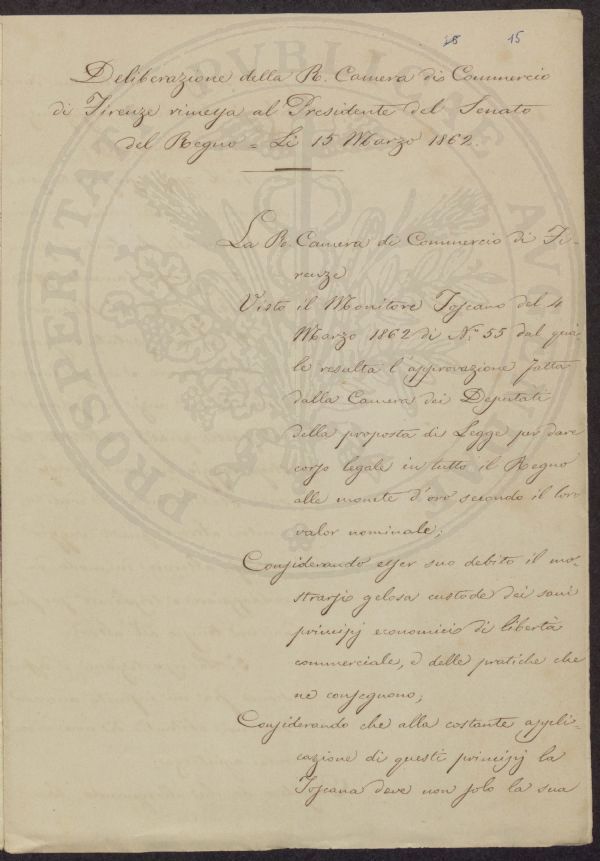 15 15
Deliberazione della R. Camera di Commercio
di Firenze rimessa al Presidente del Senato
del Regno = Li 15 Marzo 1862.
La R. Camera di Commercio di Fi-
renze
Visto il Monitore Toscano del 4
Marzo 1862 di N.° 55 dal qua-
le resulta l'approvazione fatta
dalla Camera dei Deputati
della proposta di Legge per dare
corso legale in tutto il Regno
alle monete d'oro secondo il loro
valor nominale;
Considerando esser suo debito il mo-
strarsi gelosa custode dei sani
principj economici di libertà
commerciale, e delle pratiche che
ne conseguono;
Considerando che alla costante appli-
cazione di questi principj la
Toscana deve non solo la sua
PROSPERITATI PUBLICAE AUGENDAE